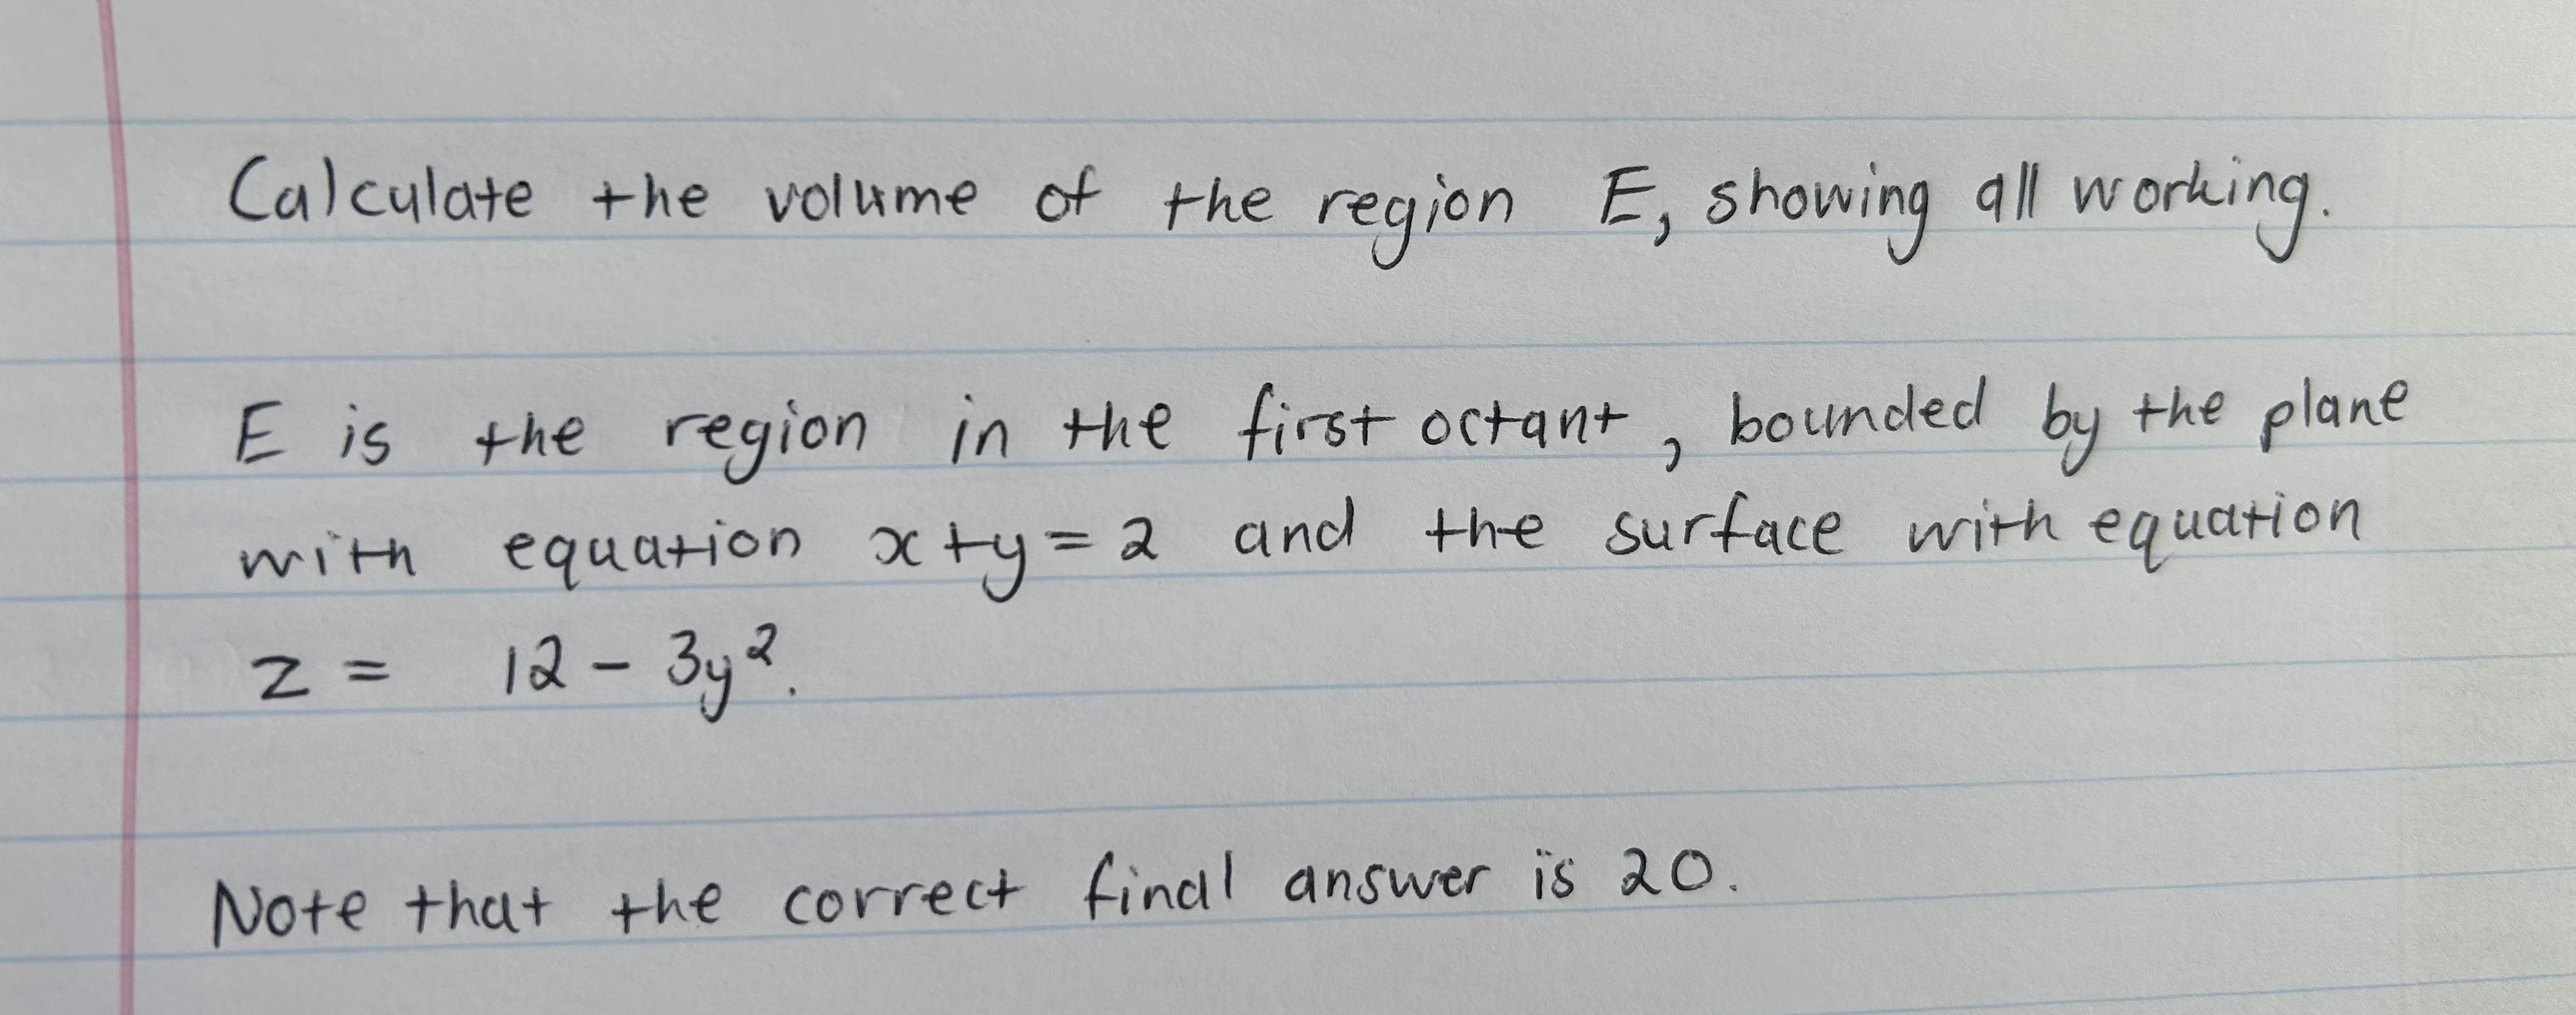 Calculate the volume of the region E, showing all working.
E is the region in the first octant, bounded by the plane
with equation x+y=2 and the surface with equation
z = 12 - 3y².
Note that the correct final answer is 20.